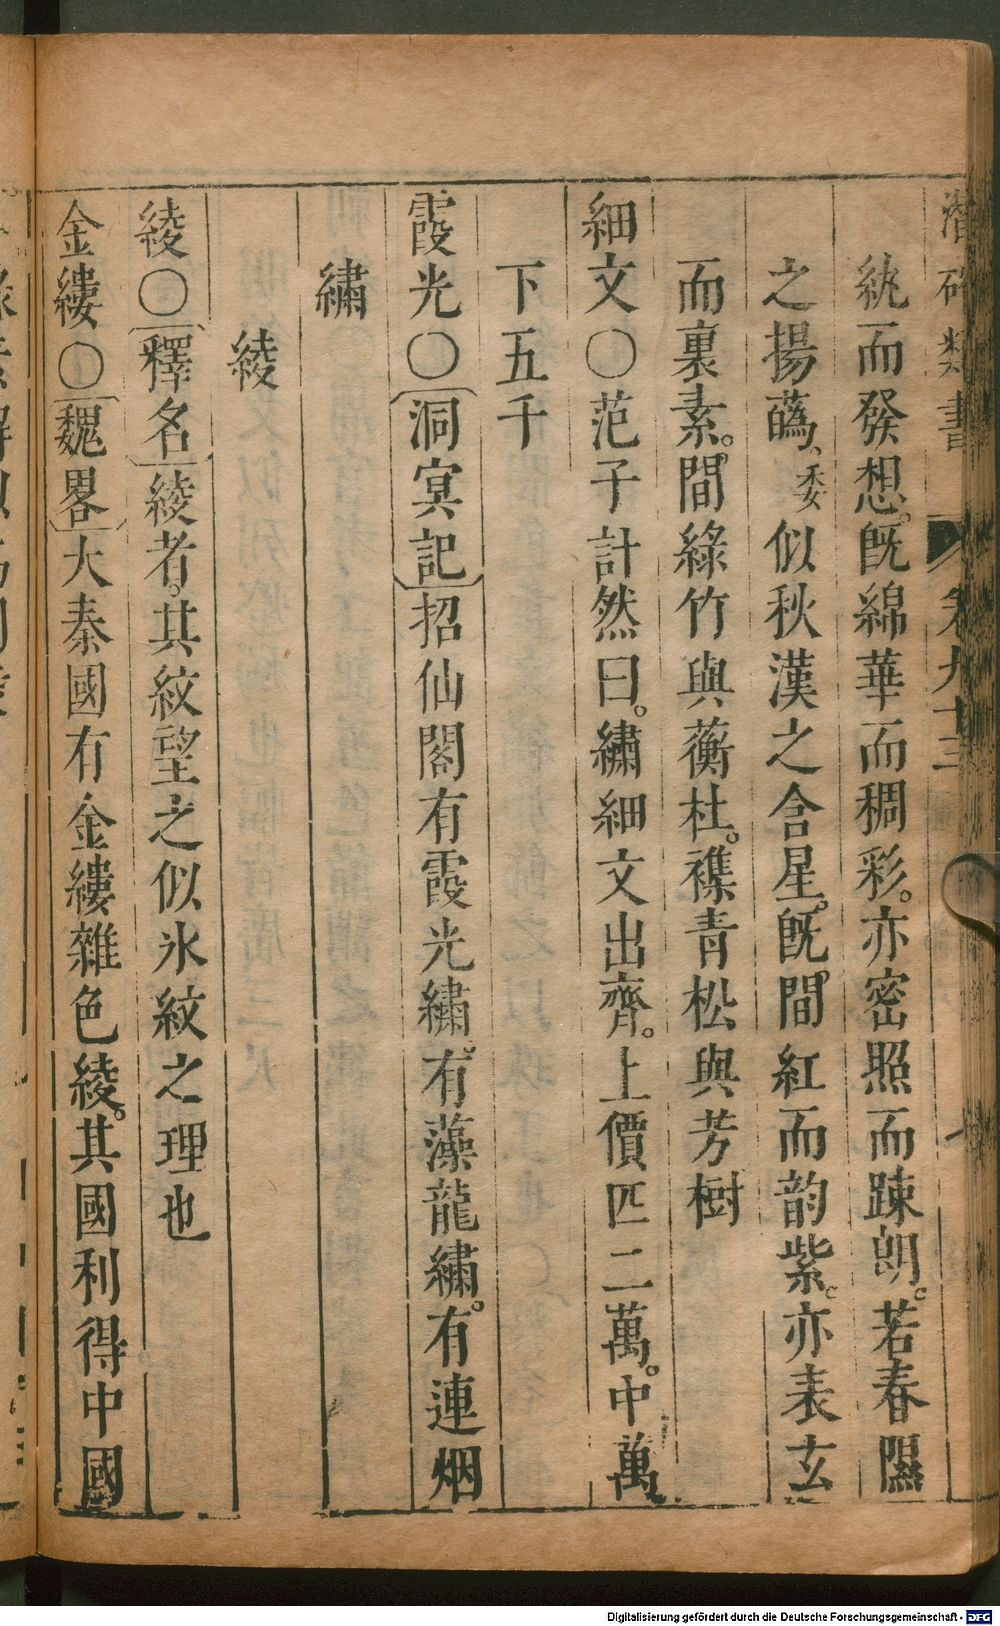 潛確類書 卷九十三
紈而發想。旣綿華而稠彩。亦密照而踈朗。若春隰
之揚蘤、委似秋漢之含星。旣間紅而韵紫。亦表玄
而裏素。間綠竹與蘅杜。襍青松與芳樹
細文〇范子計然曰。繡細文出齊。上價匹二萬。中萬
下五千
霞光〇〔洞冥記〕招仙閣有霞光繡。有藻龍繡。有連烟
繡
綾
綾〇〔釋名〕綾者。其紋望之似氷紋之理也
金縷〇〔魏畧〕大秦國有金縷雜色綾。其國利得中國
Digitalisierung gefördert durch die Deutsche Forschungsgemeinschaft - DFG